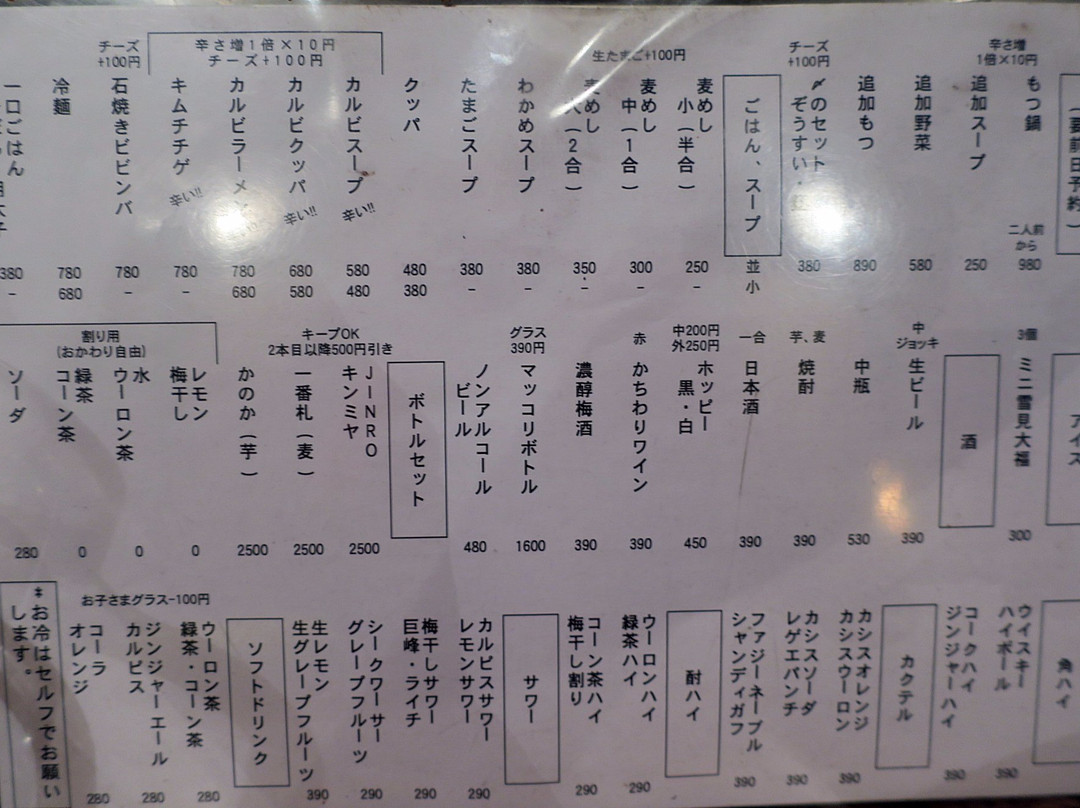 (要前日予約)
辛さ増
1倍×10円
もつ鍋
二人前
から
980
追加スープ
250
追加野菜
580
追加もつ
890
チーズ
+100円
〆のセット
ぞうすい・
380
ごはん、スープ
並
小
生たまご+100円
麦めし
小(半合)
250
-
麦めし
中(1合)
300
-
麦めし
大(2合)
350
-
わかめスープ
380
-
たまごスープ
380
-
クッパ
480
380
辛さ増1倍×10円
チーズ+100円
カルビスープ
辛い!!
580
480
カルビクッパ
辛い!!
680
580
カルビラーメン
780
680
キムチチゲ
辛い!!
780
-
チーズ
+100円
石焼きビビンバ
780
-
冷麺
780
680
一口ごはん
380
-
アイス
3個
ミニ雪見大福
300
酒
中
ジョッキ
生ビール
390
中瓶
530
芋、麦
焼酎
390
一合
日本酒
390
中200円
外250円
ホッピー
黒・白
450
赤
かちわりワイン
390
濃醇梅酒
390
グラス
390円
マッコリボトル
1600
ノンアルコール
ビール
480
ボトルセット
キープOK
2本目以降500円引き
JINRO
キンミヤ
2500
一番札(麦)
2500
かのか(芋)
2500
割り用
(おかわり自由)
レモン
梅干し
0
水
ウーロン茶
0
緑茶
コーン茶
0
ソーダ
280
角ハイ
ウイスキー
ハイボール
390
コークハイ
ジンジャーハイ
390
カクテル
カシスオレンジ
カシスウーロン
390
カシスソーダ
レゲエパンチ
390
ファジーネーブル
シャンディガフ
390
酎ハイ
ウーロンハイ
緑茶ハイ
290
コーン茶ハイ
梅干し割り
290
サワー
カルピスサワー
レモンサワー
290
梅干サワー
巨峰・ライチ
290
シークワーサー
グレープフルーツ
290
生レモン
生グレープフルーツ
390
ソフトドリンク
お子さまグラス-100円
ウーロン茶
緑茶・コーン茶
280
ジンジャーエール
カルピス
280
コーラ
オレンジ
280
*お冷はセルフでお願い
します。